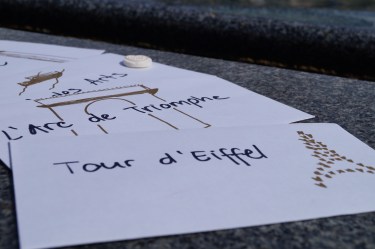 les Arts
L'Arc de Triomphe
Tour d'Eiffel